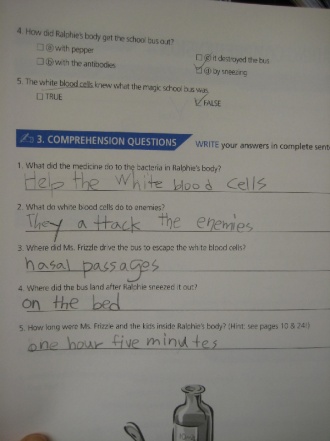 4. How did Ralphie's body get the school bus out?
☐ ⓐ with pepper ☐ ⓒ it destroyed the bus
☐ ⓑ with the antibodies ☑ ⓓ by sneezing
5. The white blood cells knew what the magic school bus was.
☐ TRUE ☑ FALSE
3. COMPREHENSION QUESTIONS WRITE your answers in complete sent
1. What did the medicine do to the bacteria in Ralphie's body?
Help the white blood cells
2. What do white blood cells do to enemies?
They attack the enemies
3. Where did Ms. Frizzle drive the bus to escape the white blood cells?
nasal passages
4. Where did the bus land after Ralphie sneezed it out?
on the bed
5. How long were Ms. Frizzle and the kids inside Ralphie's body? (Hint: see pages 10 & 24!)
one hour five minutes